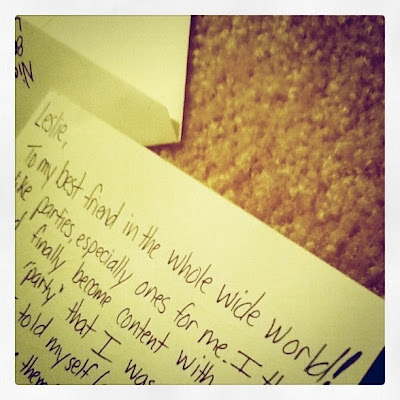 Leslie,
To my best friend in the whole wide world!!
like parties, especially ones for me. I
finally become content with
"party" that I was
told myself